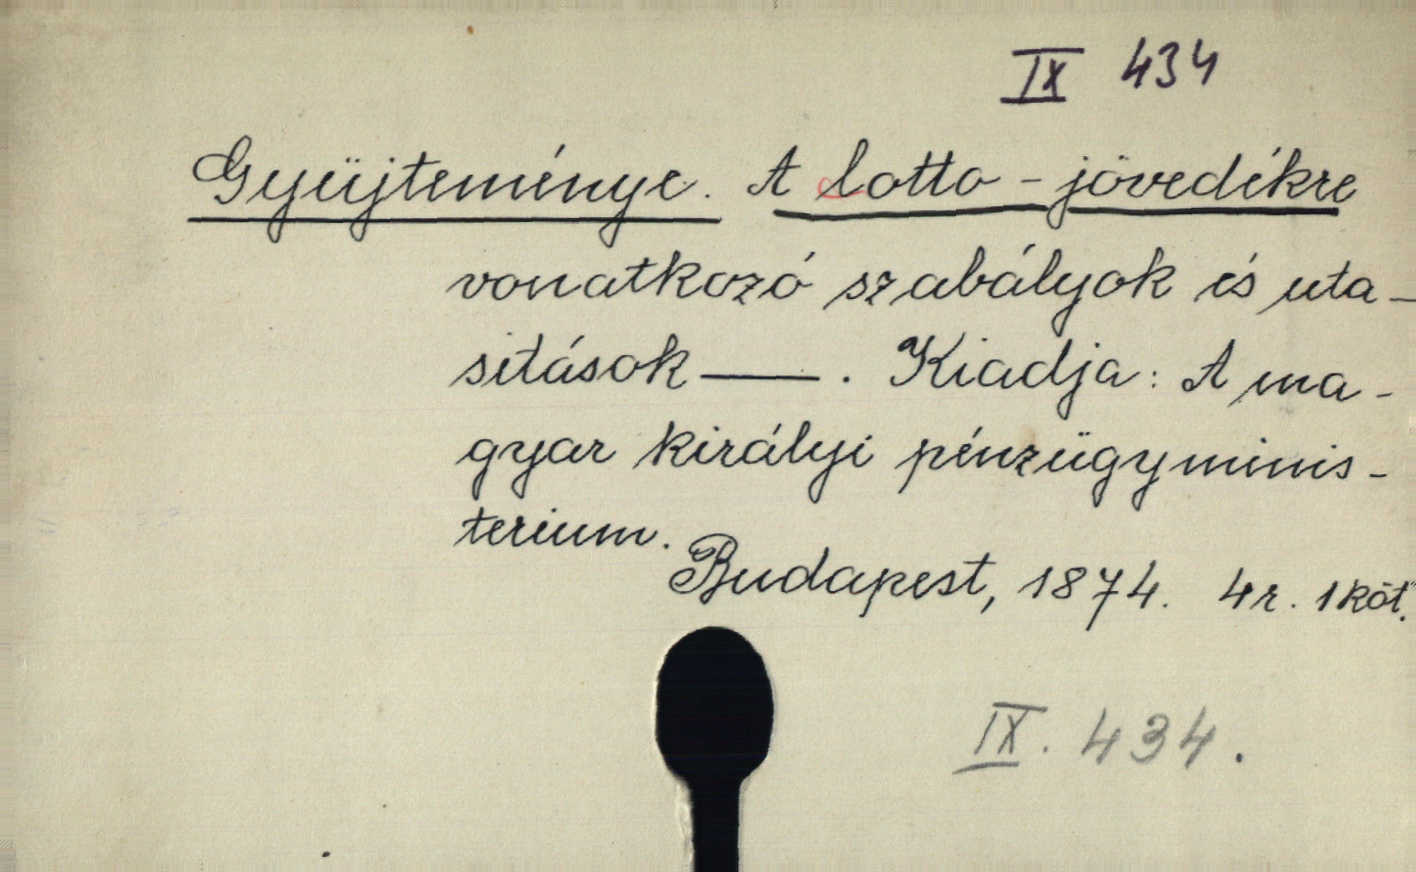 IX 434
Gyüjteménye. A lotto-jövedékre
vonatkozó szabályok és uta-
sitások —. Kiadja: A ma-
gyar királyi pénzügyminis-
terium.
Budapest, 1874. 4r. 1 köt.
IX. 434.